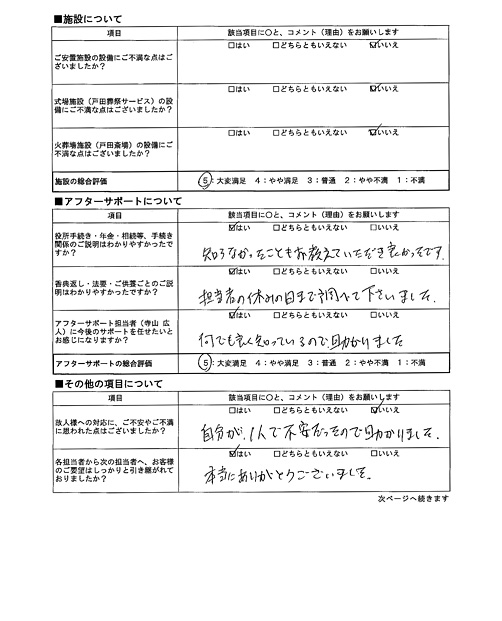 ■施設について
項目 該当項目に○と、コメント（理由）をお願いします
ご安置施設の設備にご不満な点はご
ざいましたか？
□はい □どちらともいえない ☑いいえ
式場施設（戸田葬祭サービス）の設
備にご不満な点はございましたか？
□はい □どちらともいえない ☑いいえ
火葬場施設（戸田斎場）の設備にご
不満な点はございましたか？
□はい □どちらともいえない ☑いいえ
施設の総合評価 ⑤：大変満足 4：やや満足 3：普通 2：やや不満 1：不満
■アフターサポートについて
項目 該当項目に○と、コメント（理由）をお願いします
役所手続き・年金・相続等、手続き
関係のご説明はわかりやすかったで
すか？
☑はい □どちらともいえない □いいえ
知らなかったこともお教えていただき良かったです。
香典返し・法要・ご供養ごとのご説
明はわかりやすかったですか？
☑はい □どちらともいえない □いいえ
担当者の休みの日まで調べて下さいました。
アフターサポート担当者（寺山 広
人）に今後のサポートを任せたいと
お感じになりますか？
☑はい □どちらともいえない □いいえ
何でも良く知っているので助かりました
アフターサポートの総合評価 ⑤：大変満足 4：やや満足 3：普通 2：やや不満 1：不満
■その他の項目について
項目 該当項目に○と、コメント（理由）をお願いします
故人様への対応に、ご不安やご不満
に思われた点はございましたか？
□はい □どちらともいえない ☑いいえ
自分が、1人で不安だったので助かりました。
各担当者から次の担当者へ、お客様
のご要望はしっかりと引き継がれて
おりましたか？
☑はい □どちらともいえない □いいえ
本当にありがとうございました。
次ページへ続きます